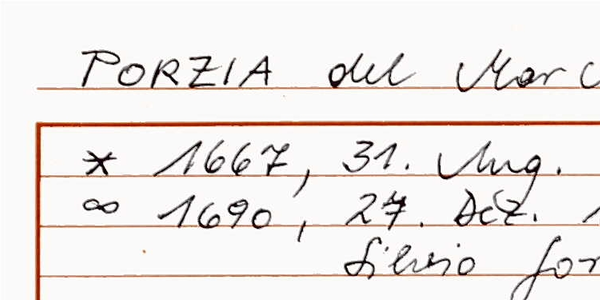 PORZIA del Marc
* 1667, 31. Aug.
∞ 1690, 27. Dez. 1
Silvio Gor